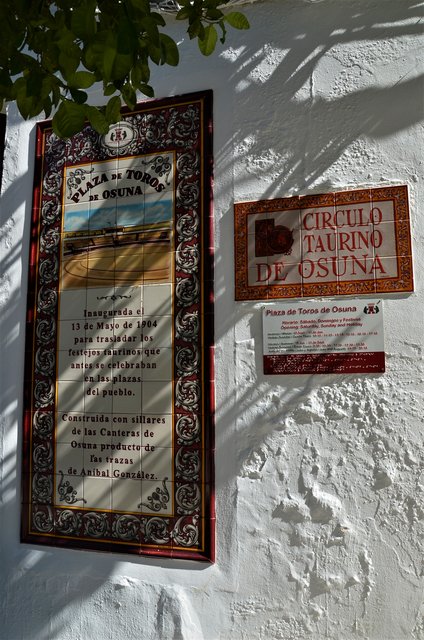 PLAZA DE TOROS
DE OSUNA
Inaugurada el
13 de Mayo de 1904
para trasladar los
festejos taurinos que
antes se celebraban
en las plazas
del pueblo.
Construida con sillares
de las Canteras de
Osuna producto de
las trazas
de Aníbal González.
CIRCULO
TAURINO
DE OSUNA
Plaza de Toros de Osuna
Horario: Sábado, Domingos y Festivos
Opening: Saturday, Sunday and Holiday